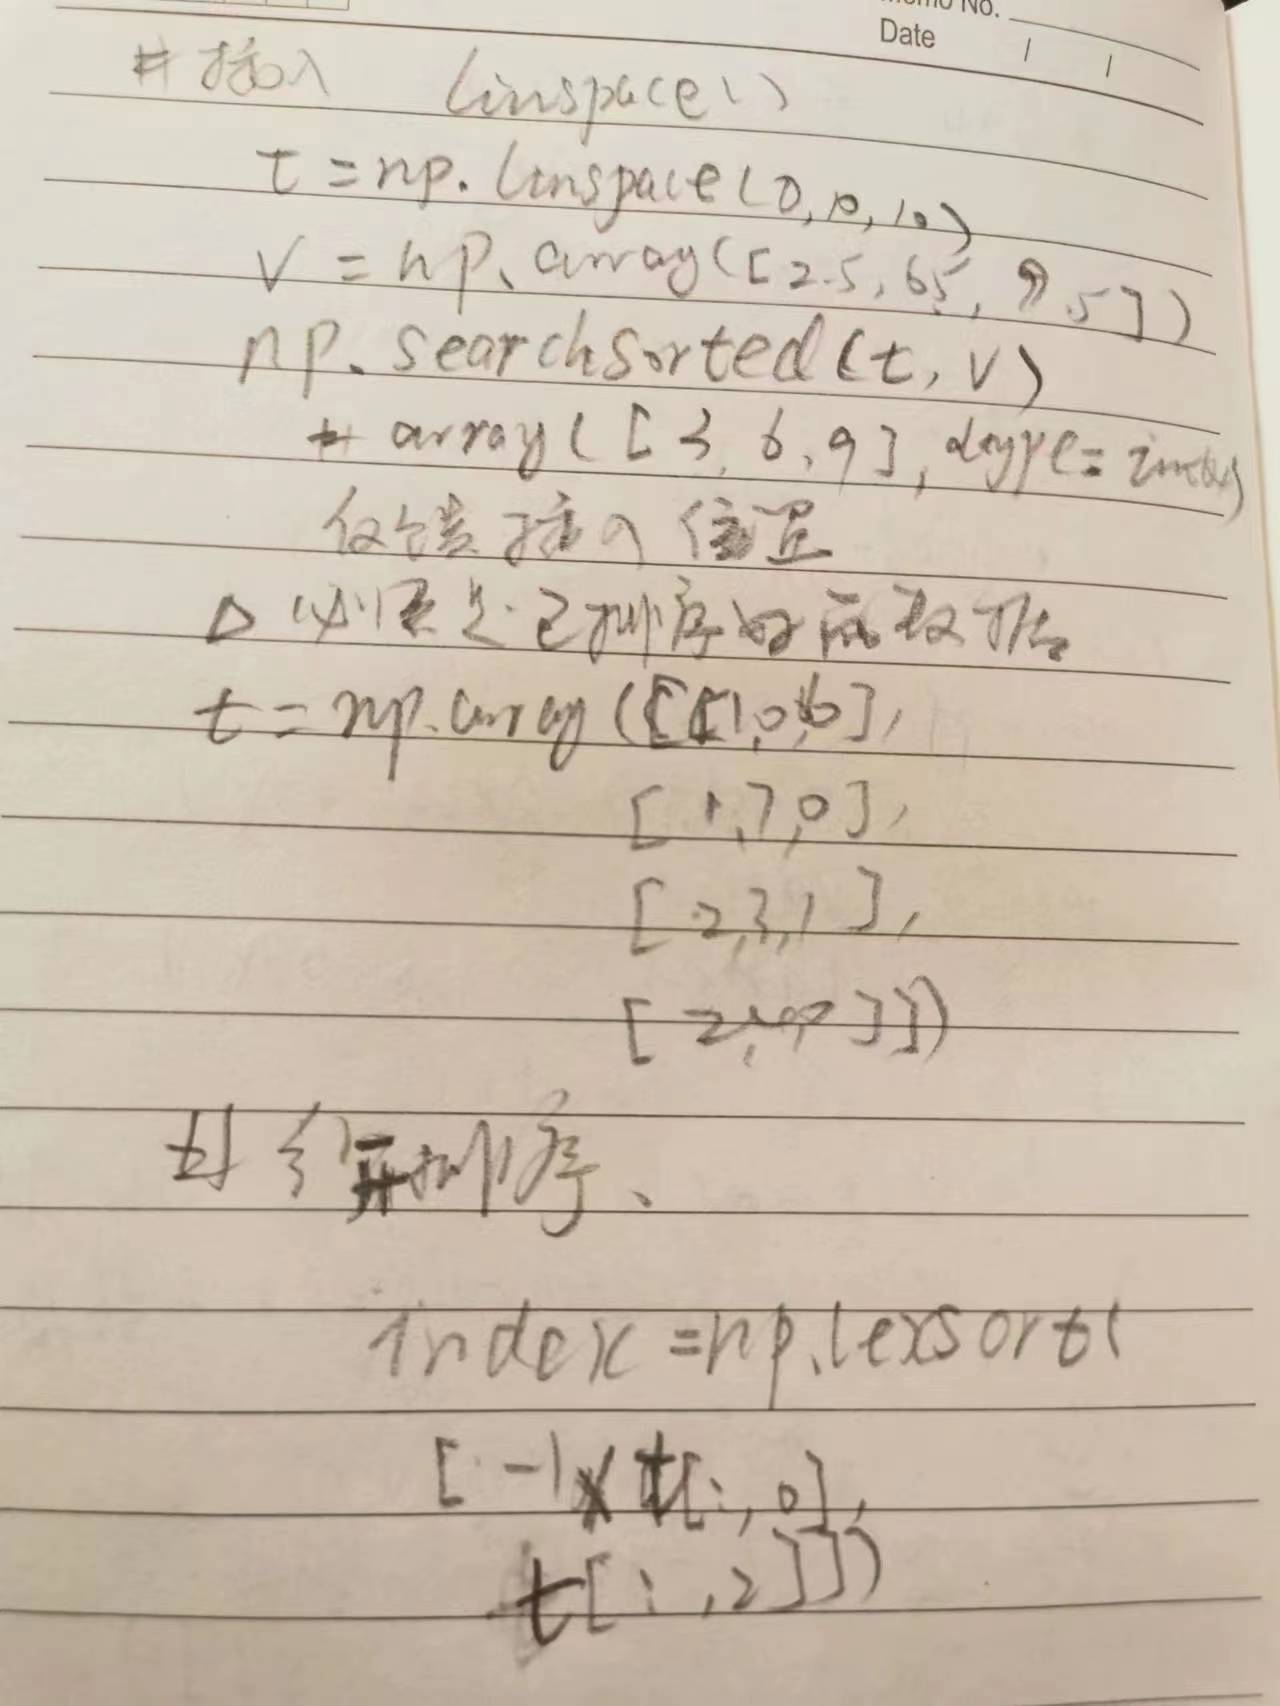 Memo No.
Date / /
# 插入 linspace()
t = np.linspace(0,10,10)
v = np.array([2.5, 6.5, 9.5])
np.searchsorted(t, v)
# array([3, 6, 9], dtype=int64)
插入位置
△ 必须是已排序的 数据
t = np.array([[1,0,6],
[1,7,0],
[2,3,1],
[2,
]])
排序、
index = np.lexsort(
[-1* t[:,0],
t[:,2]])